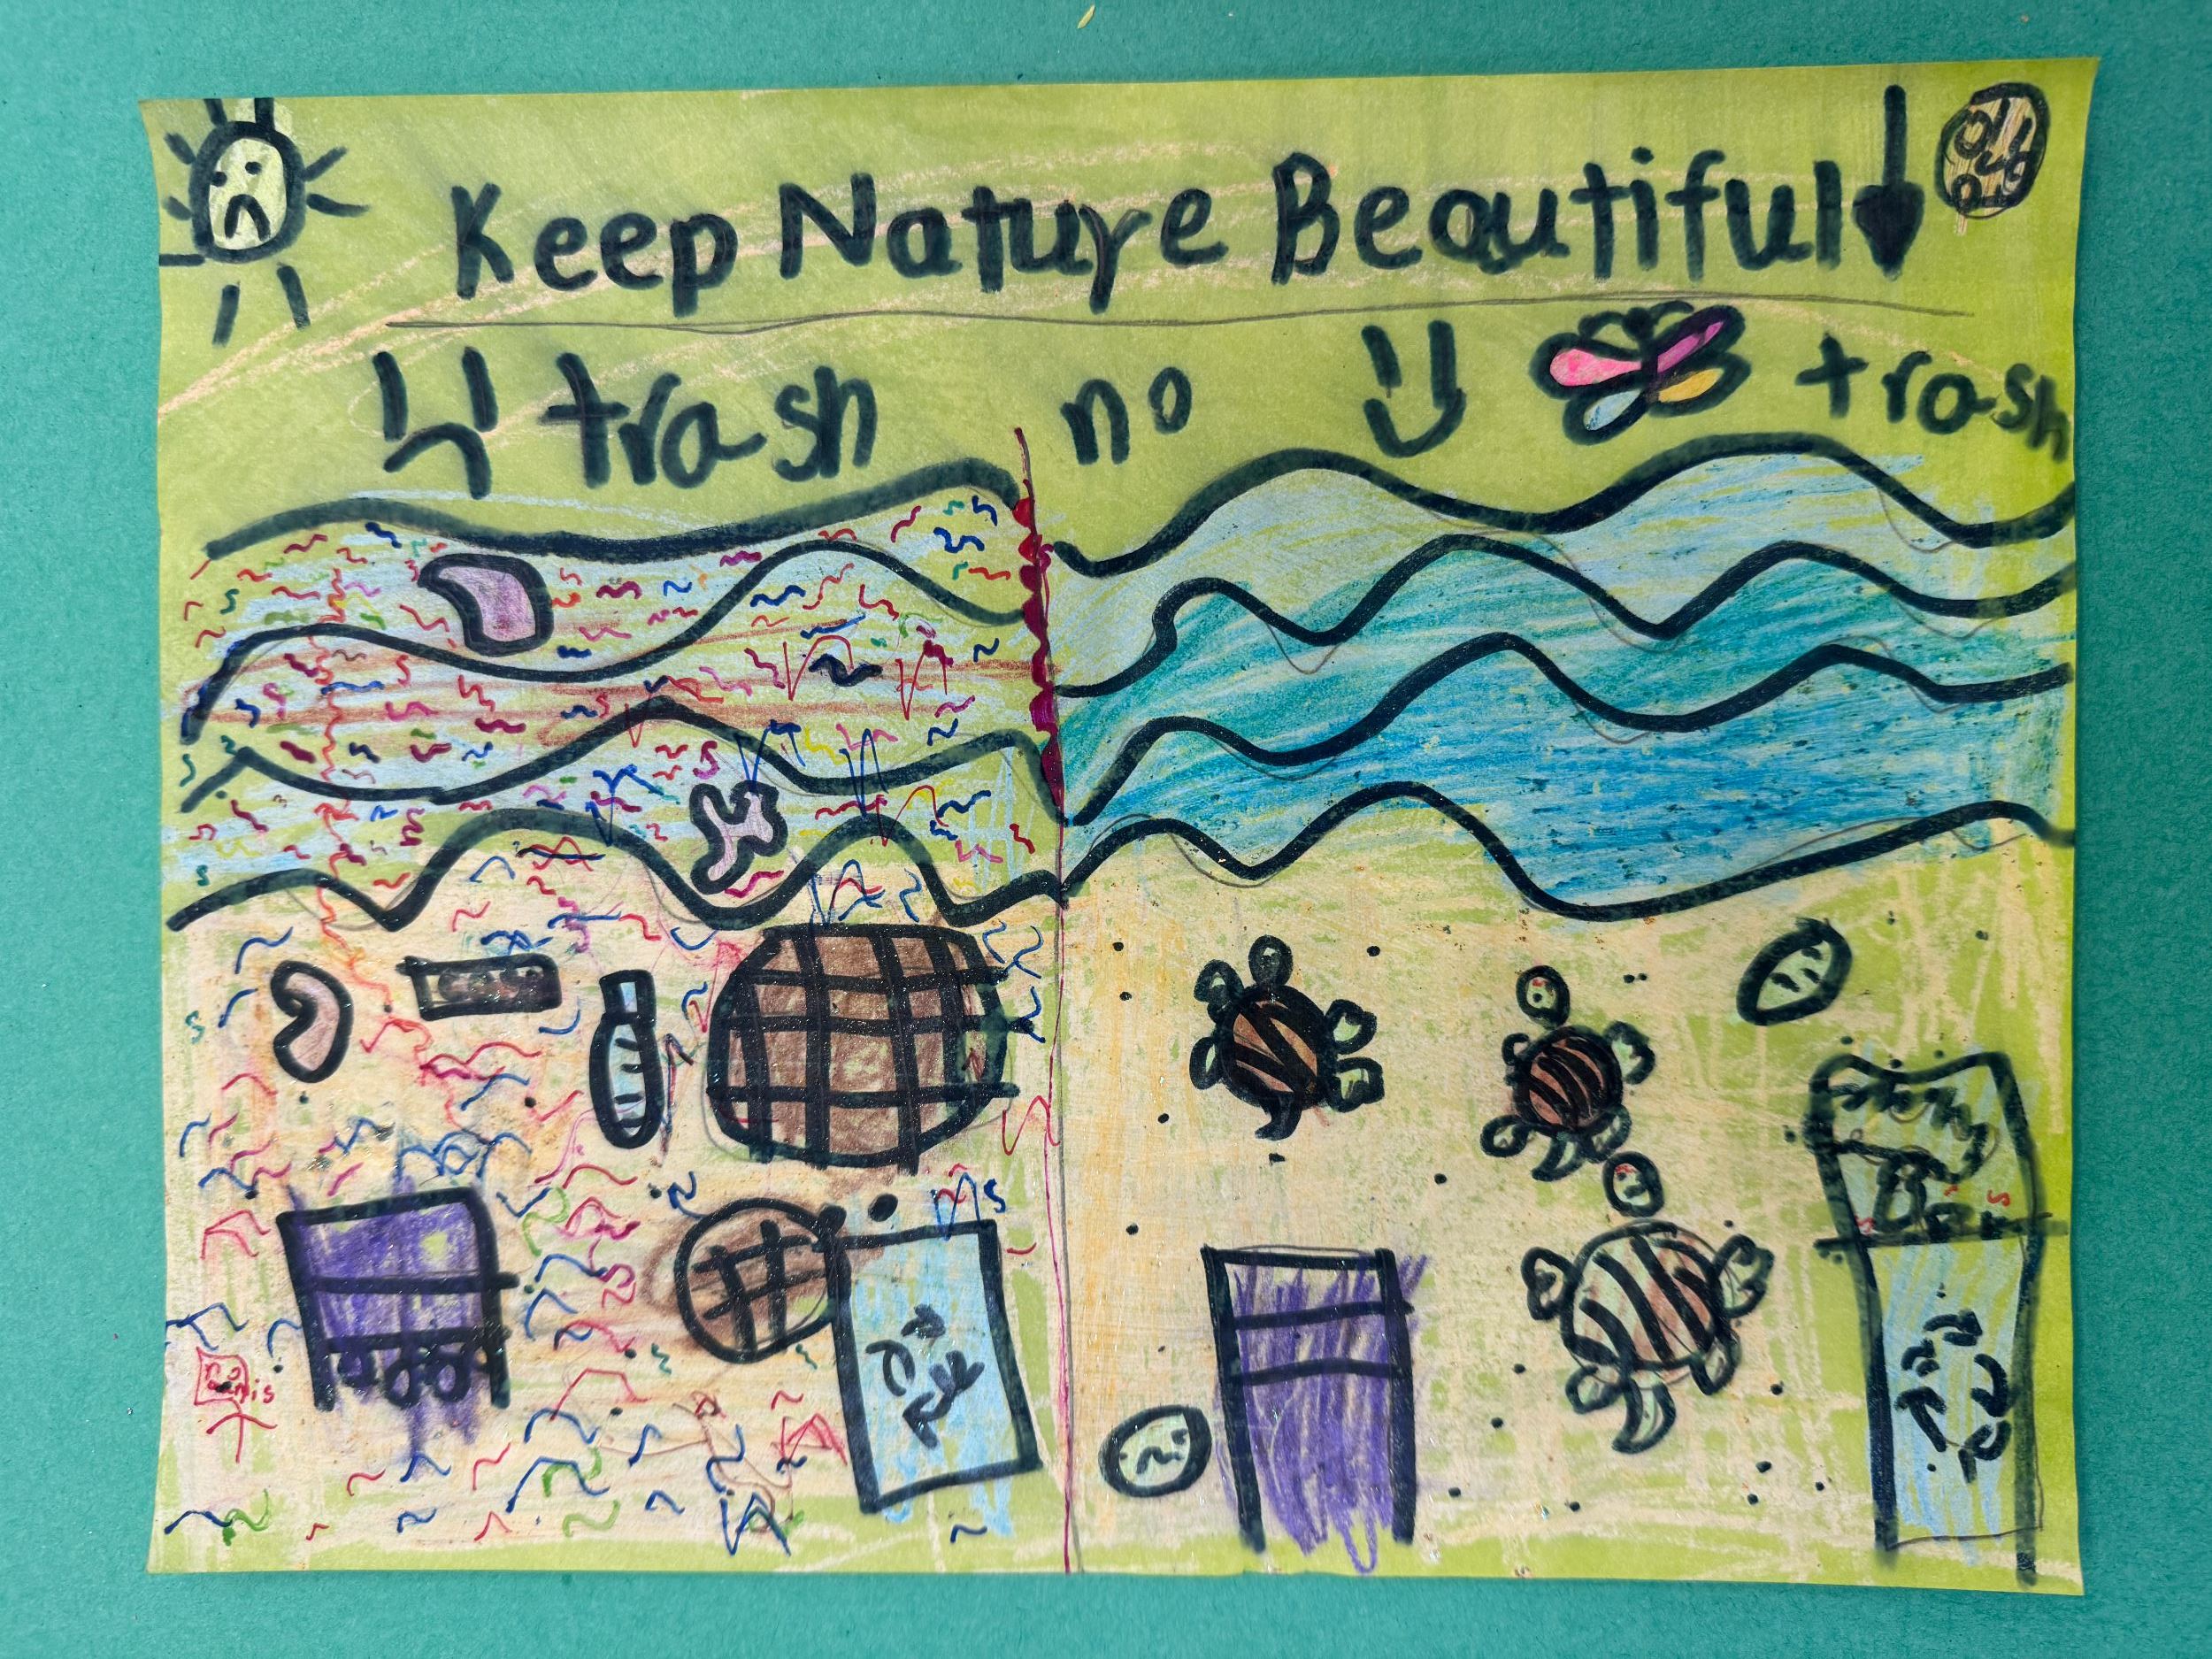 Keep Nature Beautiful
trash
no trash